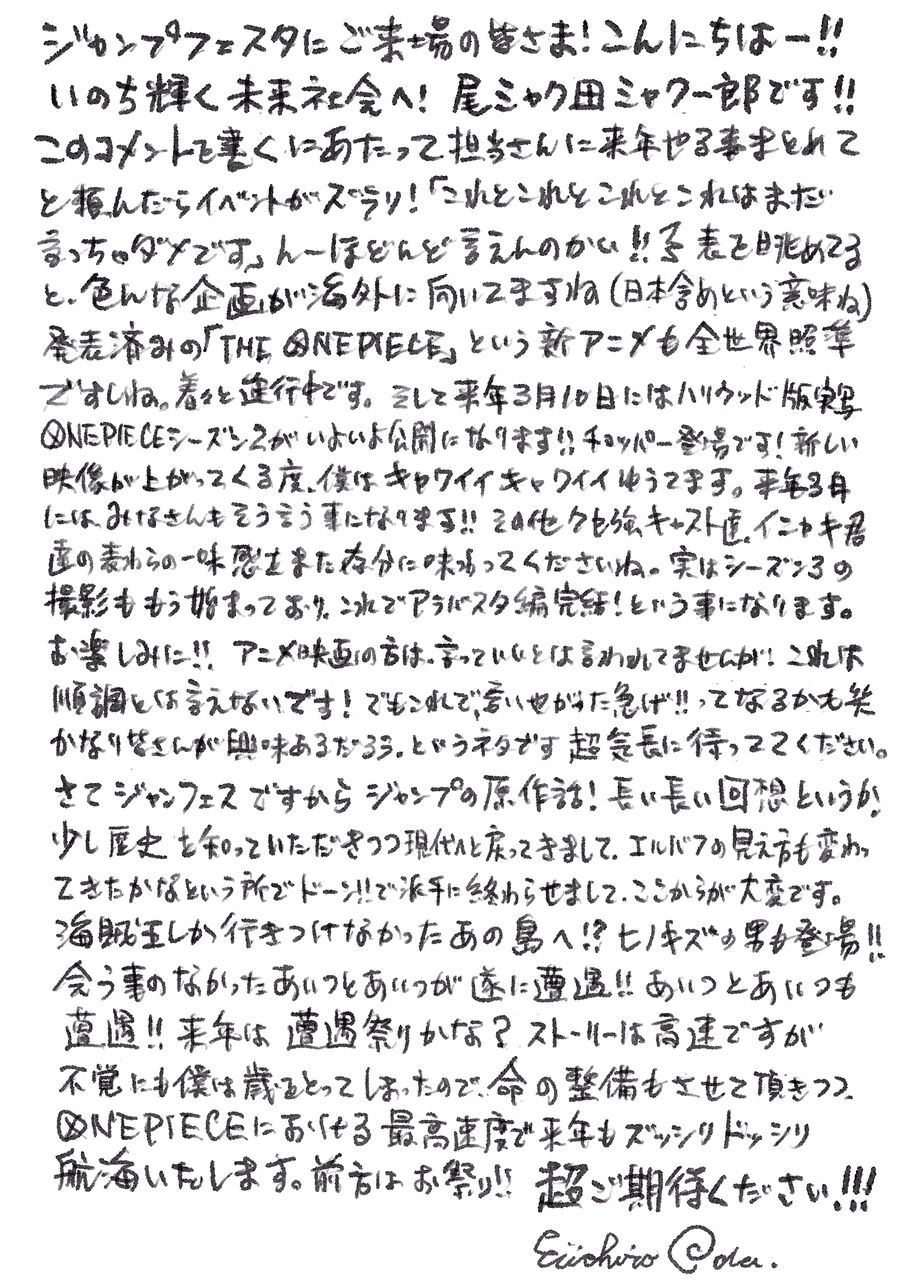 ジャンプフェスタにご来場の皆さま!こんにちはー!!
いのち輝く未来社会へ! 尾ミャク田ミャクー郎です!!
このコメントを書くにあたって担当さんに来年やる事まとめて
と頼んだらイベントがズラリ!「これとこれとこれとこれはまだ
言っちゃダメです」んーほどんど言えんのかい!!予表を眺めてる
と、色んな企画が海外に向いてますね(日本含めという意味ね)
発表済みの「THE ONE PIECE」という新アニメも全世界照準
ですしね。着々と進行中です。そして来年3月10日にはハリウッド版実写
ONE PIECEシーズン2がいよいよ公開になります!!チョッパー登場です!新しい
映像が上がってくる度、僕はキャワイイキャワイイゆうてます。来年3月
には、みなさんもそう言う事になります!!その他クセ強キャスト達、イニャキ君
達の麦わらの一味感をまた存分に味わってくださいね。実はシーズン3の
撮影ももう始まっており、これでアラバスタ編完結!という事になります。
お楽しみに!! アニメ映画の方は、言っていいとは言われてませんが!これは
順調とは言えないです!でもこれで、言いやがった急げ!!ってなるかも笑
かなり皆さんが興味あるだろう、というネタです超気長に待っててください。
さてジャンフェスですからジャンプの原作話!長い長い回想というか、
少し歴史を知っていただきつつ現代へと戻ってきまして、エルバフの見え方も変わっ
てきたかなという所でドーン!!で派手に終わらせまして、ここからが大変です。
海賊王しか行きつけなかったあの島へ!?ヒノキズの男も登場!!
会う事のなかったあいつとあいつが遂に遭遇!!あいつとあいつも
遭遇!!来年は遭遇祭りかな?ストーリーは高速ですが
不覚にも僕は歳をとってしまったので、命の整備もさせて頂きつつ、
ONE PIECEにおける最高速度で来年もズッシリドッシリ
航海いたします。前方はお祭り!! 超ご期待ください!!!
Eiichiro Oda.